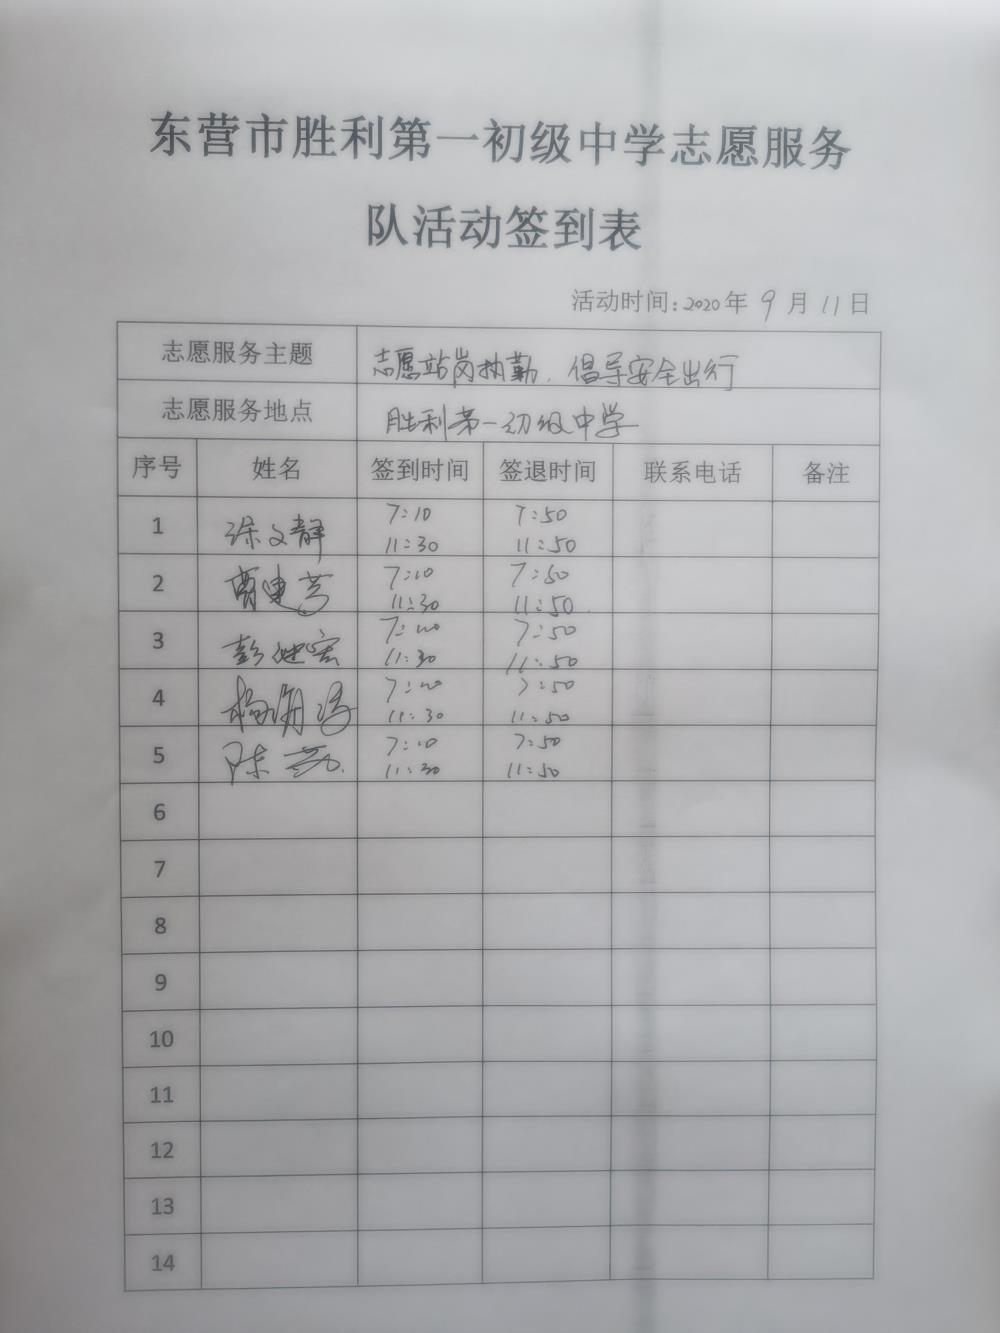 东营市胜利第一初级中学志愿服务
队活动签到表
活动时间：2020年 9 月 11 日
志愿服务主题 志愿站岗执勤，倡导安全出行
志愿服务地点 胜利第一初级中学
序号 姓名 签到时间 签退时间 联系电话 备注
1 徐文静 7:10 7:50
11:30 11:50
2 7:10 7:50
11:30 11:50
3 7:10 7:50
11:30 11:50
4 7:10 7:50
11:30 11:50
5 陈 7:10 7:50
11:30 11:50
6
7
8
9
10
11
12
13
14